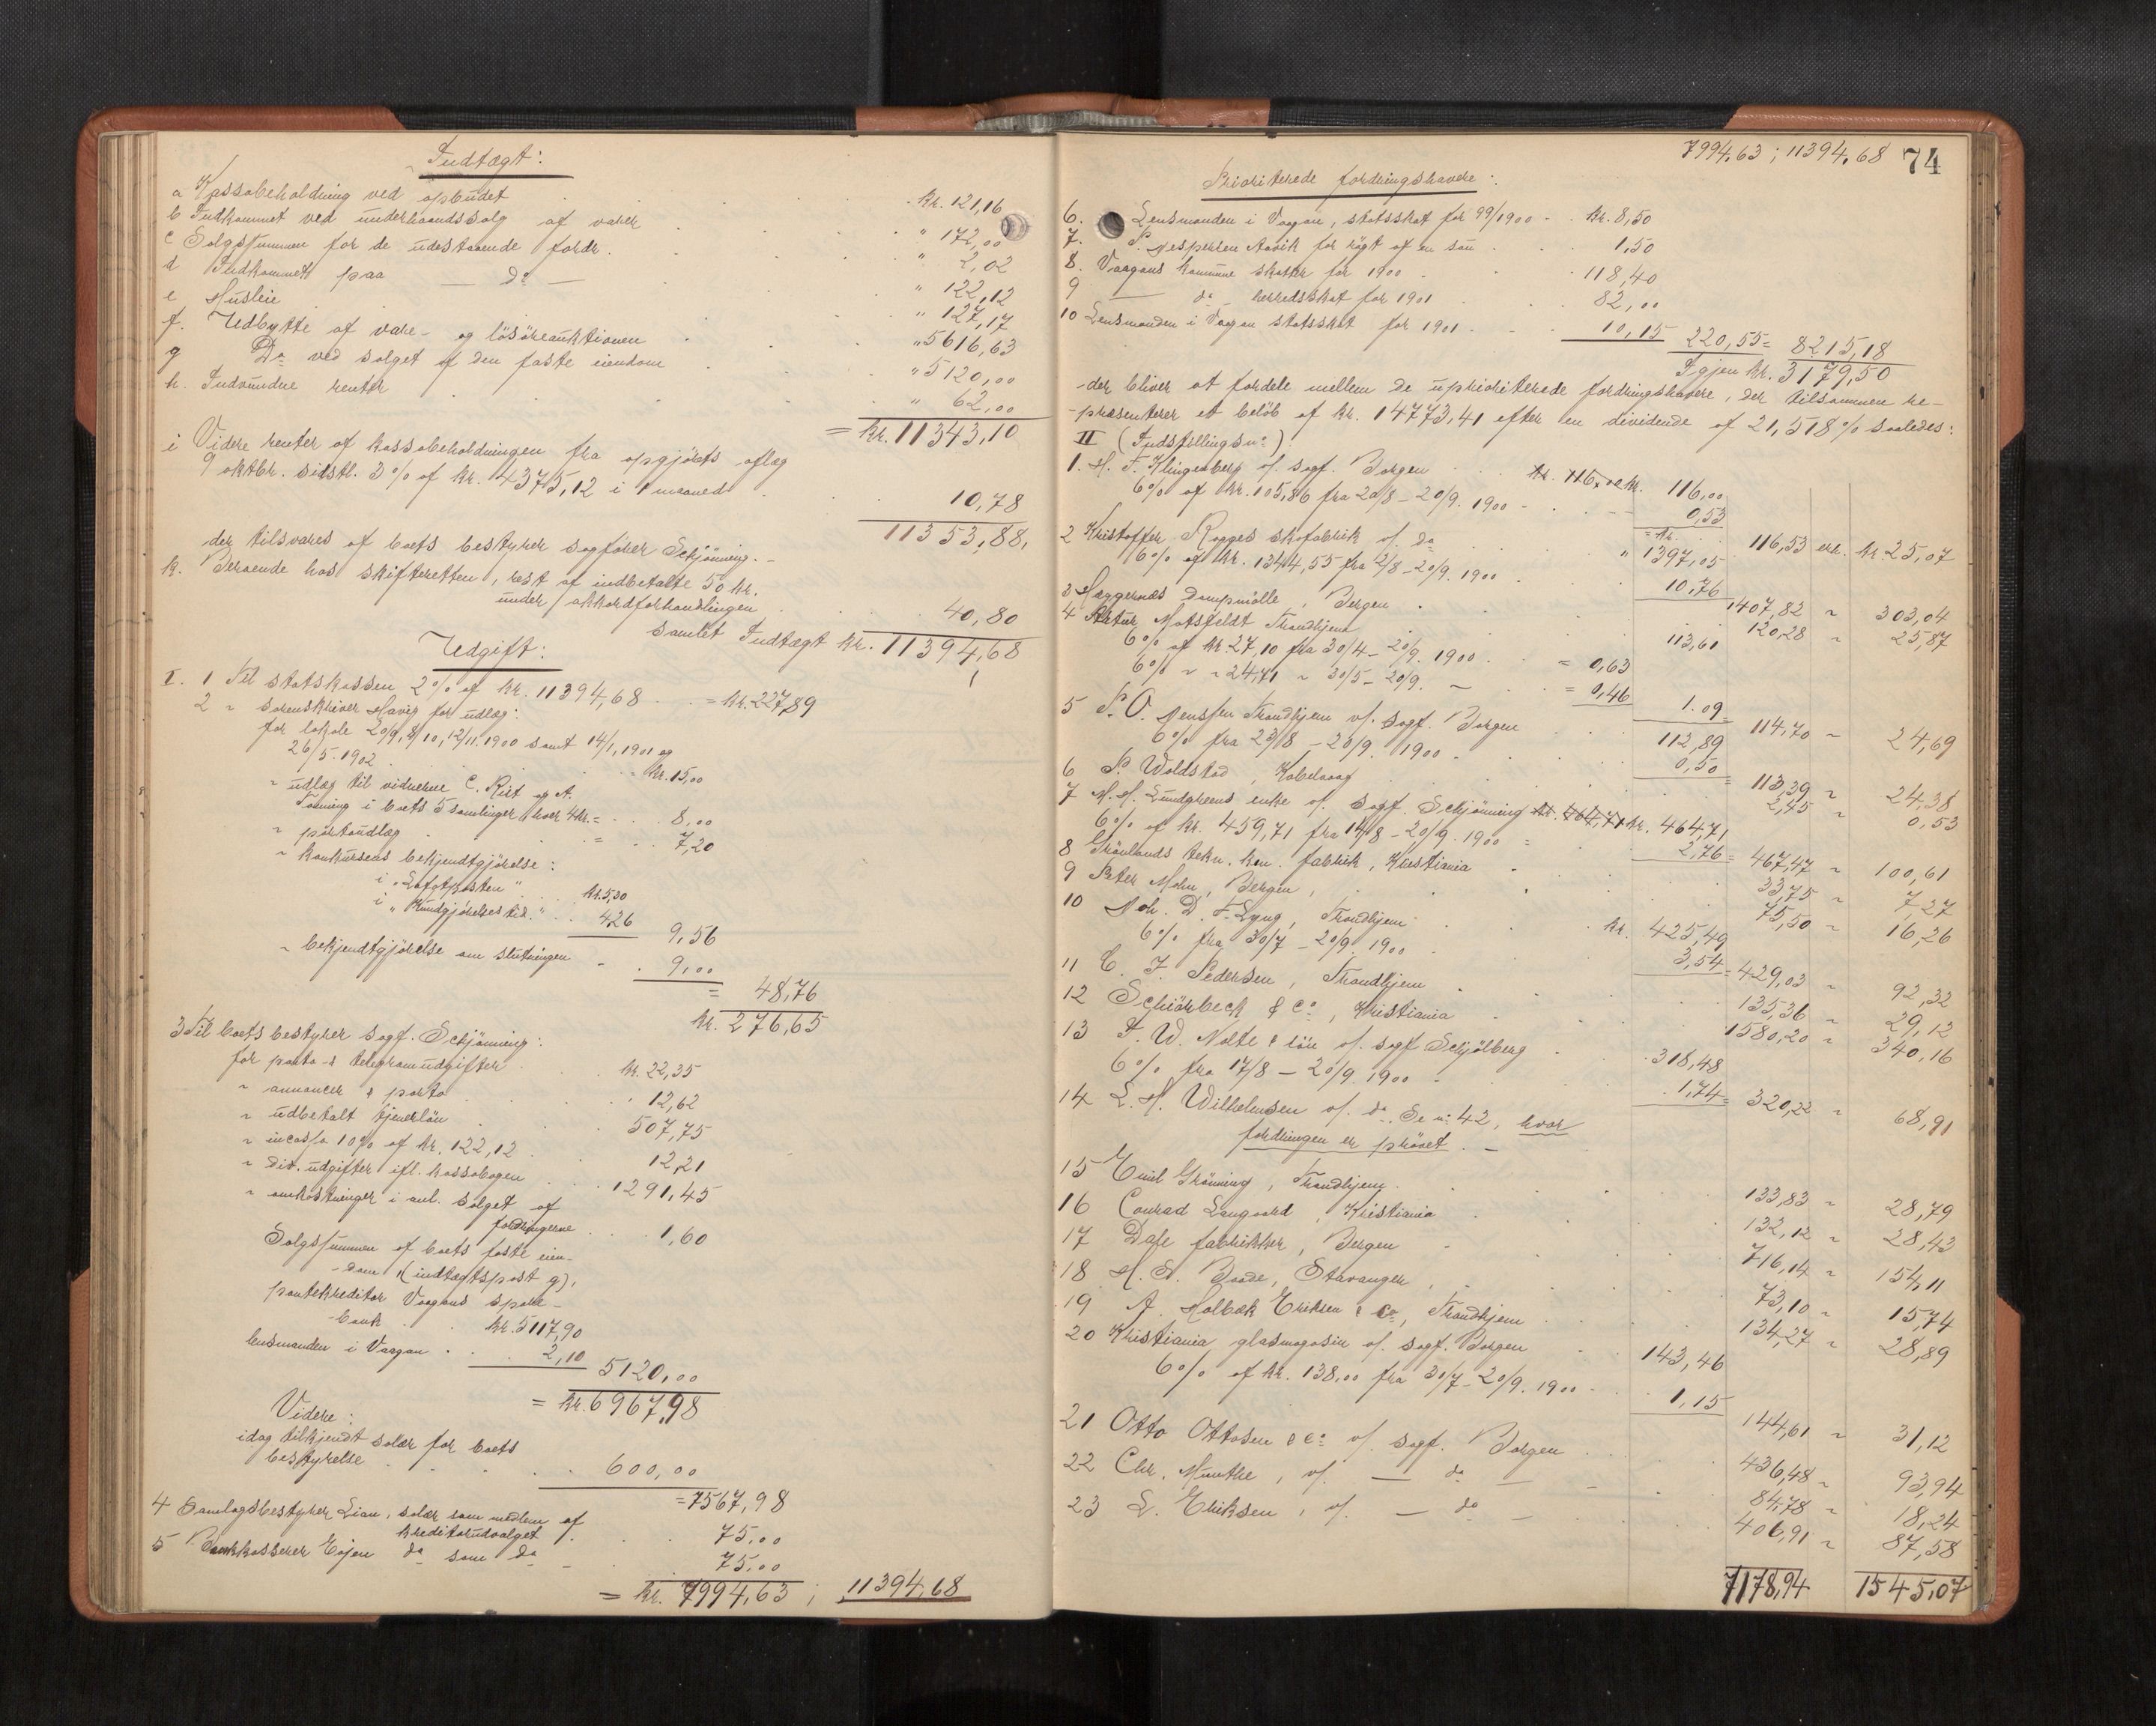 Indtægt:
a Kassabeholdning ved opbudet . . . kr. 121,16
b Indkommet ved underhaandssalg af varer . . " 172,00
c Salgssummen for de udestaaende fordr. . . " 2,02
d Indkommet paa — do — . . " 122,12
e Husleie . . " 127,17
f. Udbytte af vare- og lösöreauktionen . " 5616,63
g Do ved salget af den faste eiendom . " 5120,00
h. Indvundne renter . . " 62,00
= kr. 11343,10
i Videre renter af kassabeholdningen fra opgjörets aflæg
9 oktbr. sidstl. 3% af kr. 4375,12 i 1 maaned . . 10,78
11353,88,
der tilsvares af boets bestyrer sagförer Schjönning. -
k. Beroende hos skifteretten, rest af indbetalte 50 kr.
under akkordforhandlingen . . 40,80
samlet Indtægt kr. 11394,68
Udgift:
I. 1 Til statskassen 2% af kr. 11394,68 . . = kr. 227,89
2 " sorenskriver Havig for udlæg:
for lokale 20/9, 8/10, 12/11. 1900 samt 14/1, 1901 og
26/5. 1902 . . = kr. 15,00
" udlæg til vidnerne C. Rist og A.
Tönning i boets 5 samlinger hver 4 kr. = . . 8,00
" portoudlæg . . = . . 7,20
" konkursens bekjendtgjörelse:
i "Lofotposten" . . kr. 5,30
i "Kundgjörelsestid." . . 4,26 9,56
" bekjendtgjörelse om slutningen - . 9,00
= 48,76
kr. 276,65
3 Til boets bestyrer sagf. Schjönning:
for porto- & telegramudgifter . . kr. 22,35
" annoncer & porto . . " 12,62
" udbetalt tjenerlön . . 507,75
" incasso 10% af kr. 122,12 . . 12,21
" div. udgifter ifl. kassabogen . . 1291,45
" omkostninger i anl. salget af
fordringerne . . 1,60
Salgssummen af boets faste eien-
-dom (indtægtspost g),
pantekreditor Vaagans spare-
-bank . . kr. 5117,90
lensmanden i Vaagan . . . 2,10 5120,00
= kr. 6967,98
Videre:
idag tilkjendt salær for boets
bestyrelse . . . 600,00
= 7567,98
4 Samlagsbestyrer Lian, salær som medlem af
kreditorudvalget . . 75,00
5 Bankkasserer Eojen do som do - . . 75,00
= kr. 7994,63 ; 11394,68
7994,63 ; 11394,68 74
Prioriterede fordringshavere:
6. Lensmanden i Vaagan, statsskat for 99/1900 - . kr. 8,50
7. P. Jespersen Aavik for rögt af en sau . . . 1,50
8. Vaagans kommune skatter for 1900 . . . 118,40
9 — do herredsskat for 1901 . . 82,00
10 Lensmanden i Vaagan statsskat for 1901 . . . 10,15 220,55 = 8215,18
Igjen kr. 3179,50
der bliver at fordele mellem de uprioriterede fordringshavere, der tilsammen re-
-præsenterer et belöb af kr. 14773,41 efter en dividende af 21,518% saaledes:
II (Indstillingsno)
1. H. F. Klingenberg v/. sagf. Borgen . . . kr. 116,00 kr. 116,00
6% af kr. 105,86 fra 20/8 - 20/9. 1900 - . . — 0,53
= kr. 116,53 erh. kr 25,07
2 Kristoffer Rogges skofabrik v/. do . . " 1397,05
6% af kr. 1344,55 fra 2/8 - 20/9. 1900 . . . 10,76
1407,82 " 303,04
3 Vaggernæs dampmölle, Bergen . . . 120,28 " 25,87
4 Artur Motzfeldt Trondhjem . . . 113,61
6% af kr. 27,10 fra 30/4 - 20/9. 1900 . . = 0,63
6% " " 24,71 " 30/5 - 20/9. — . . = 0,46 1.09 =
114,70 " 24,69
5 P. O. Jenssen Trondhjem v/. sagf. Borgen . . 112,89
6% fra 23/8 - 20/9. 1900 - . . 0,50
= 113,39 " 24,38
6 P. Woldstad, Kabelvaag . . . 2,45 " 0,53
7 M. H. Lundgreens enke v/. sagf. Schjönning kr. 464,71 kr. 464,71
6% af kr. 459,71 fra 14/8 - 20/9. 1900 = . . 2,76 = 467,47 " 100,61
8 Grönlands tekn. kem. fabrik, Kristiania . . 33,75 " 7-27
9 Peter Mohn, Bergen, . . . 75,50 " 16,26
10 Joh. D. F. Lyng, Trondhjem . . . kr. 425,49
6% fra 30/7 - 20/9. 1900 . . . 3,54 = 429,03 " 92,32
11 C. F. Pedersen, Trondhjem . . . 135,36 " 29,12
12 Schiörbeck & Co, Kristiania . . . 1580,20 " 340,16
13 F. W. Nolte & sön v/. sagf Schjölberg . . 318,48
6% fra 17/8 - 20/9. 1900 - . . 1,74 = 320,22 " 68,91
14 L. H. Wilhelmsen v/. do. Se no 42, hvor
fordringen er prövet. —
15 Emil Grönning, Trondhjem . . . 133,83 " 28,79
16 Conrad Langaard, Kristiania . . . 132,12 " 28,43
17 Dale fabrikker, Bergen . . . 716,14 " 154,11
18 H. A. Baade, Stavanger, . . . 73,10 " 15,74
19 A. Holbæk Eriksen & Co, Trondhjem . . . 134,27 " 28,89
20 Kristiania glasmagasin v/. sagf. Borgen . . 143,46
6% af kr. 138,00 fra 30/7 - 20/9. 1900 - . . 1,15
144,61 " 31,12
21 Otto Ottosen & Co v/. sagf. Borgen . . . 436,48 " 93,94
22 Chr. Munthe, v/. — do — . . 84,78 " 18,24
23 L. Eriksen, v/. — do . . . 406,91 " 87,58
7178,94 1545,07